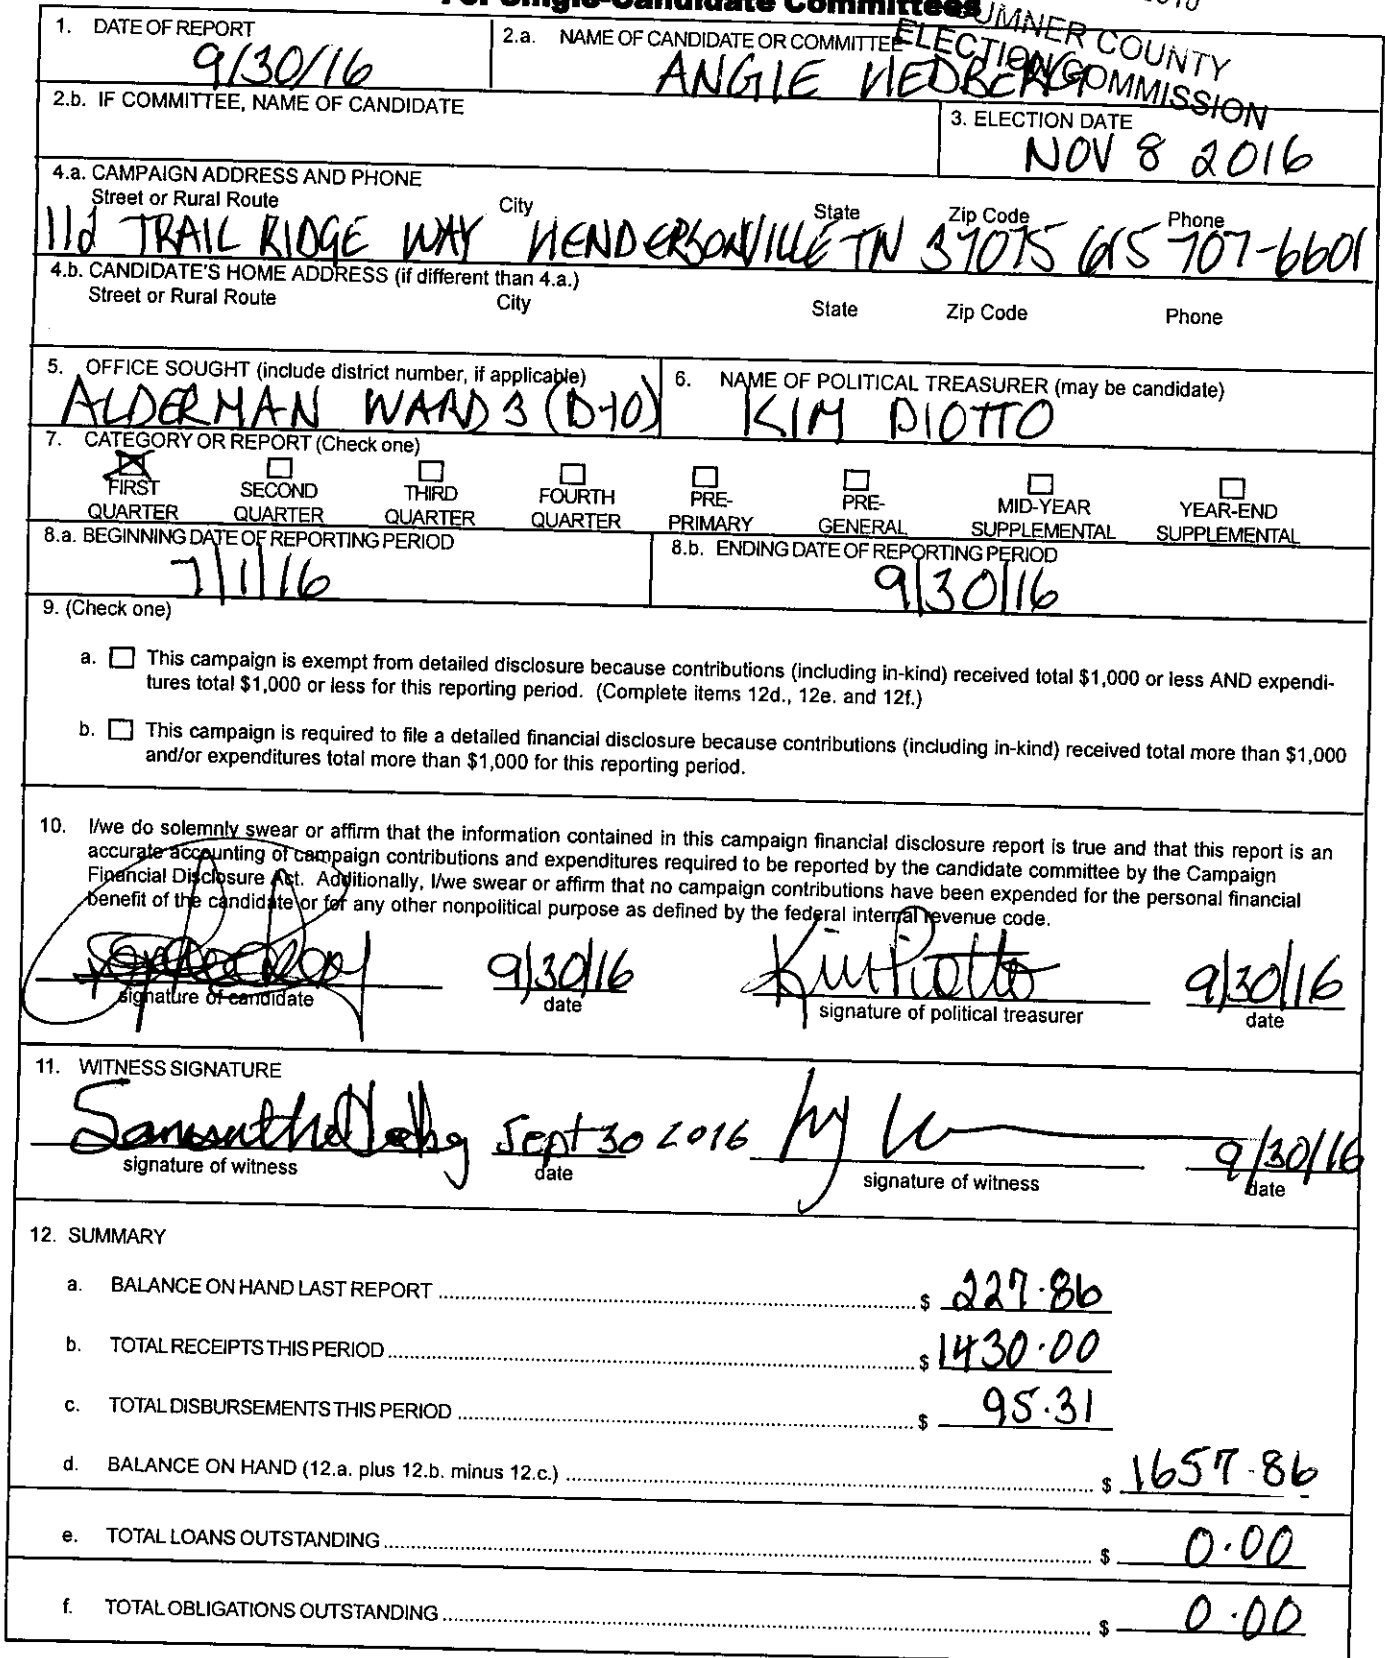 For Single-Candidate Committees
SUMNER COUNTY
ELECTION COMMISSION
1. DATE OF REPORT
9/30/16
2.a. NAME OF CANDIDATE OR COMMITTEE
ANGIE HEDBERG
2.b. IF COMMITTEE, NAME OF CANDIDATE
3. ELECTION DATE
NOV 8 2016
4.a. CAMPAIGN ADDRESS AND PHONE
Street or Rural Route City State Zip Code Phone
112 TRAIL RIDGE WAY HENDERSONVILLE TN 37075 615 707-6601
4.b. CANDIDATE'S HOME ADDRESS (if different than 4.a.)
Street or Rural Route City State Zip Code Phone
5. OFFICE SOUGHT (include district number, if applicable)
ALDERMAN WARD 3 (D-10)
6. NAME OF POLITICAL TREASURER (may be candidate)
KIM PIOTTO
7. CATEGORY OR REPORT (Check one)
FIRST QUARTER
SECOND QUARTER
THIRD QUARTER
FOURTH QUARTER
PRE-PRIMARY
PRE-GENERAL
MID-YEAR SUPPLEMENTAL
YEAR-END SUPPLEMENTAL
8.a. BEGINNING DATE OF REPORTING PERIOD
7/1/16
8.b. ENDING DATE OF REPORTING PERIOD
9/30/16
9. (Check one)
a. This campaign is exempt from detailed disclosure because contributions (including in-kind) received total $1,000 or less AND expendi-
tures total $1,000 or less for this reporting period. (Complete items 12d., 12e. and 12f.)
b. This campaign is required to file a detailed financial disclosure because contributions (including in-kind) received total more than $1,000
and/or expenditures total more than $1,000 for this reporting period.
10. I/we do solemnly swear or affirm that the information contained in this campaign financial disclosure report is true and that this report is an
accurate accounting of campaign contributions and expenditures required to be reported by the candidate committee by the Campaign
Financial Disclosure Act. Additionally, I/we swear or affirm that no campaign contributions have been expended for the personal financial
benefit of the candidate or for any other nonpolitical purpose as defined by the federal internal revenue code.
9/30/16 Kim Piotto 9/30/16
signature of candidate date signature of political treasurer date
11. WITNESS SIGNATURE
Samantha Sept 30 2016 9/30/16
signature of witness date signature of witness date
12. SUMMARY
a. BALANCE ON HAND LAST REPORT $ 227.86
b. TOTAL RECEIPTS THIS PERIOD $ 1430.00
c. TOTAL DISBURSEMENTS THIS PERIOD $ 95.31
d. BALANCE ON HAND (12.a. plus 12.b. minus 12.c.) $ 1657.86
e. TOTAL LOANS OUTSTANDING $ 0.00
f. TOTAL OBLIGATIONS OUTSTANDING $ 0.00